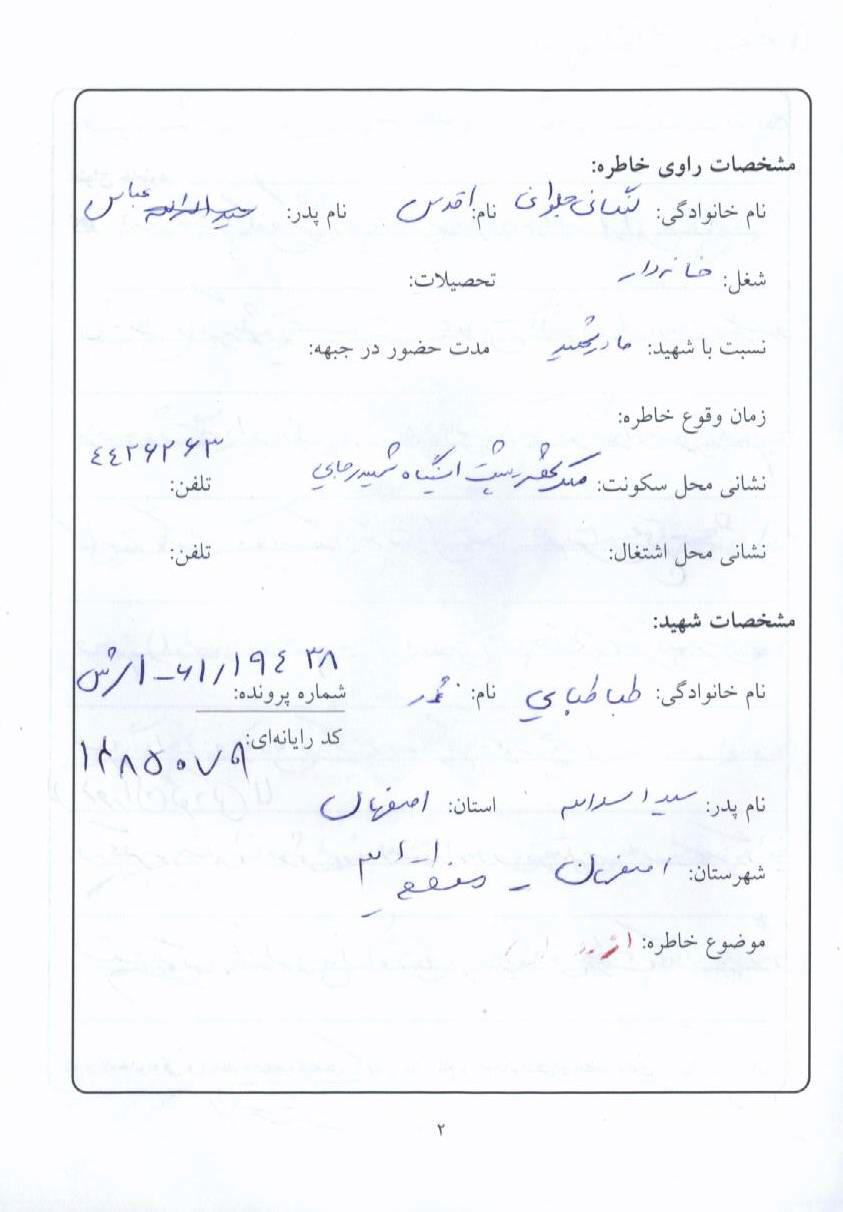 مشخصات راوی خاطره:
نام خانوادگی: جلوانی نام: اقدس نام پدر: عباس
شغل: خانه‌دار تحصیلات:
نسبت با شهید: مادر شهید مدت حضور در جبهه:
زمان وقوع خاطره:
نشانی محل سکونت: ملک‌شهر پشت ایستگاه شهید رجایی تلفن: ۴۴۲۶۲۶۳
نشانی محل اشتغال: تلفن:
مشخصات شهید:
نام خانوادگی: طباطبایی نام: شماره پرونده: ۶۱/۱۹۴۳۸-
کد رایانه‌ای: ۱۲۸۵۰۷۹
نام پدر: سید اسدالله استان: اصفهان
شهرستان: اصفهان -
موضوع خاطره:
۲